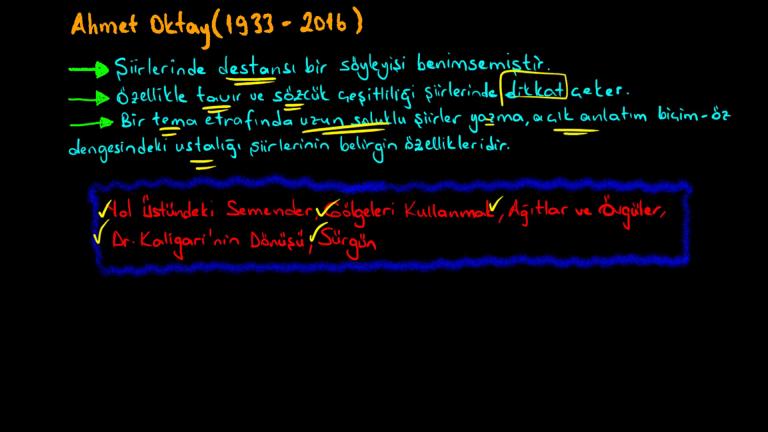 Ahmet Oktay(1933 - 2016)
Şiirlerinde destansı bir söyleyişi benimsemiştir.
Özellikle tavır ve sözcük çeşitliliği şiirlerinde dikkat çeker.
Bir tema etrafında uzun soluklu şiirler yazma, açık anlatım biçim-öz
dengesindeki ustalığı şiirlerinin belirgin özellikleridir.
Yol Üstündeki Semender, Gölgeleri Kullanmak, Ağıtlar ve Övgüler,
Dr. Kaligari'nin Dönüşü, Sürgün